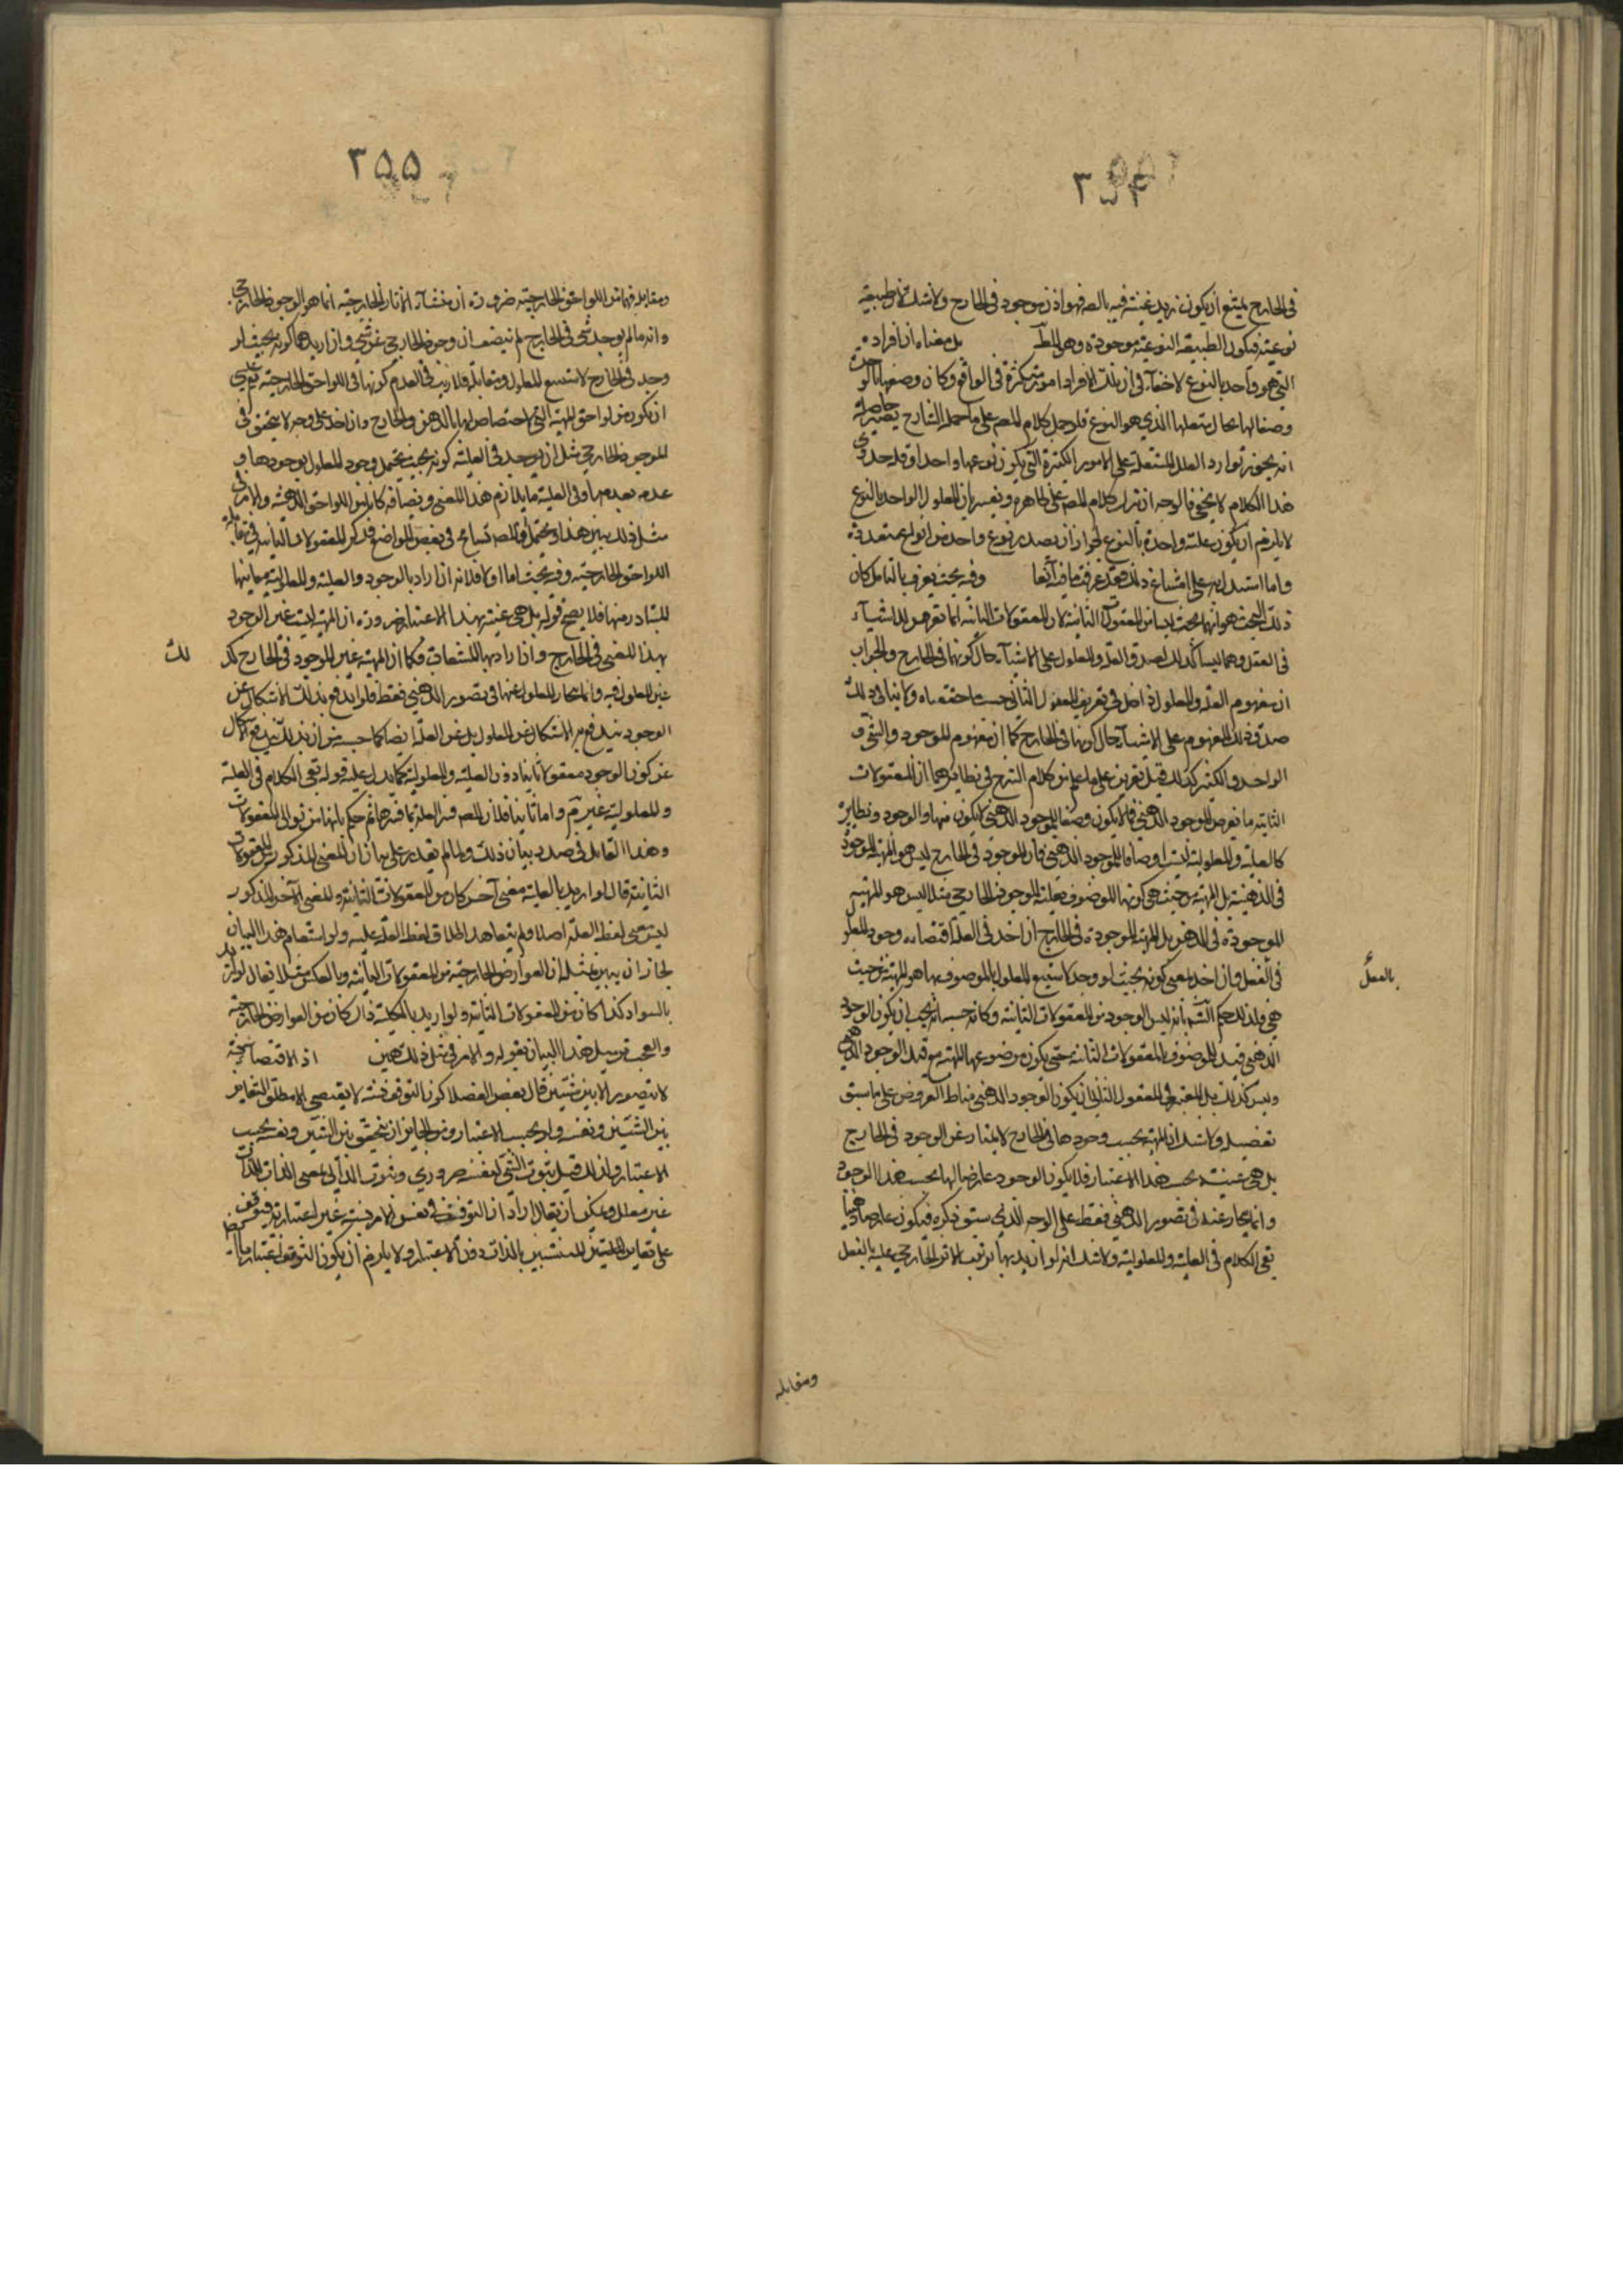 ٣٥٤
في الخارج يمتنع ان يكون زيد عينه فيه بالضرفهو اذن موجود في الخارج ولا شك انه طبيعة
نوعية فيكون الطبيعة النوعية موجودة وهو المط بل معناه ان افراده
التي هو واحد بالنوع لا خفاء في ان تلك الافراد امور متكثرة في الواقع وكان وصفها بالوحدة
وصفا لها بحال متعلقها الذي هو النوع فلو حمل كلام المص على ما حمله الشارح يصير حاصله
انه يجوز توارد العلل المستقلة على الامور الكثيرة التي يكون نوعها واحدا وقد جدوى
هذا الكلام لا يخفى فالوجه ان يترك كلام المص على ظاهره ويفسر بان المعلول الواحد بالنوع
لا يلزم ان يكون علته واحدة بالنوع لجواز ان يصدر نوع واحد من انواع متعددة
واما استدلاله على امتناع ذلك فقد عرفت ما فيه آنفا وفيه بحث يعرف بالتامل كان
ذلك البحث هو انهما بحث ليسا من المعقولات الثانية لان المعقولات الثانية انما تعرض للاشياء
في العقل وهما ليسا كذلك لصدق العلة والمعلول على الاشياء حال كونها في الخارج والجواب
ان مفهوم العلة والمعلول داخل في تعريف المعقول الثاني حسبما حققناه ولا ينافي ذلك
صدق ذلك المفهوم على الاشياء حال كونها في الخارج كما ان مفهوم الموجود والشيء و
الواحد والكثير كذلك قيل تعريض على ما علم من كلام الشرح في نظايرهما ان المعقولات
الثانية ما تعرض للموجود الذهني فما لا يكون وصفا للموجود الذهني لا يكون منها والوجود ونظايره
كالعلية والمعلولية ليست اوصافا للموجود الذهني فان الموجود في الخارج ليس هو المهية الموجودة
في الذهنية بل المهية من حيث هي كونها الموصوف بعلية الموجود الخارجي مثلا ليس هو المهية
الموجودة في الذهن بل المهية الموجودة في الخارج ان اخذ في العلة اقتضاءه وجود المعلول
في الفعل وان اخذ بمعنى كونه بحيث لو وجد لاستتبع المعلول بالموصوف بها هو المهية من حيث
هي ولذلك حكم الش بانه ليس الوجود من المعقولات الثانية وكانه حسب انه يجب ان يكون الوجود
الذهني قيد للموصوف بالمعقولات الثانية حتى يكون موضوعها المهية مع قيد الوجود الذهني
وليس كذلك بل المعتبر في المعقول الثاني ان يكون الوجود الذهني مناط العروض على ما سبق
تفصيله ولا شك ان المهية بحسب وجودها في الخارج لا يمتاز عن الوجود في الخارج
بل هي عينه بحسب هذا الاعتبار فلا يكون الوجود عارضا لها بحسب هذا الوجود
وانما ينحاز عنه في تصور الذهني فقط على الوجه الذي سبق ذكره فيكون عارضا ذهنيا
بقي الكلام في العلية والمعلولية ولا شك انه لو اريد بها ترتب الاثر الخارجي عليه بالفعل
بالفعل
ومقابله
٣٥٥
ومقابله فهما من اللواحق الخارجية ضرورة ان منشاء الاثار الخارجية انما هو الوجود الخارجي
وانه ما لم يوجد شيء في الخارج لم يتصف ان وجود الخارجي عن شيء وان اريد بهما كونه بحيث لو
وجد في الخارج لاستتبع المعلول ومقابله فلا ريب في العدم كونهما في اللواحق الخارجية
ان يكون من لواحق المهية التي لا اختصاص لها بالذهن والخارج وان اخذ على وجه لا يتحقق في
الموجود الخارجي مثل ان يوجد في العلية كونه بحيث يحتمل وجود المعلول بوجودها و
عدمه بعدمها وفي العلية ما يلازم هذا المعنى ويضايفه كانا من اللواحق الذهنية والامر في
مثل ذلك بين هذا ويحتمل والمص تسامح في بعض المواضع فذكر المعقولات الثانية في مقابلة
اللواحق الخارجية وفيه بحث اما اولا فلانه ان اراد بالوجود والعلية والمعلولية معانيها
المتبادر منها فلا يصح قوله بل هي عينه بهذا الاعتبار ضرورة ان المهية ليست عين الوجود
بهذا المعنى في الخارج وان اراد بها المشتقات فكما ان المهية عين الموجود في الخارج كذ
لك
عين المعلول فيه وانما ينحاز المعلول عنها في تصور الذهني فقط فلو اندفع بذلك الاشكال عن
الوجود يندفع به الاشكال عن المعلول بل عن العلة ايضا كما حسب من ان بذلك يندفع الاشكال
عن كون الوجود معقولا ثانيا دون العلية والمعلولية كما يدل عليه قوله بقي الكلام في العلية
والمعلولية غير تم واما ثانيا فلان المص فسر العلة بما فسرها ثم حكم بانها من ثواني المعقولات
وهذا القائل في صدد بيان ذلك ولما لم يقدر على بيان ان المعنى المذكور من المعقولات
الثانية قال لو اريد بالعلية معنى آخر كان من المعقولات الثانية والمعنى الآخر المذكور
ليس معنى لفظ العلة اصلا ولم يتعاهد اطلاق لفظ العلة عليه ولو استقام هذا البيان
لجاز ان يبين بمثله ان العوارض الخارجية من المعقولات الثانية وبالعكس مثلا يقال لو اريد
بالسواد كذا كان من المعقولات الثانية ولو اريد بالكلية ذاك كان من العوارض الخارجية
والعجب تذييل هذا البيان بقوله والامر في مثل ذلك هين اذ الاقتضاء نسبة
لا يتصور الا بين شيئين قال بعض الفضلا كون التوقف نسبة لا يقتضي الا مطلق التغاير
بين الشيئين ونفسه ولو بحسب الاعتبار ومن الجايز ان يتحقق بين الشيئين ونفسه بحسب
الاعتبار ولذلك قيل ثبوت الشيء لنفسه ضروري وثبوت الذاتي بمعنى الذات للذات
غير معلل ويمكن ان يقال اراد ان التوقف في نفس الامر نسبة غير اعتبارية فيتوقف
على تغاير المنتسبين بالذات دون الاعتبار ولا يلزم ان يكون التوقف اعتباريا